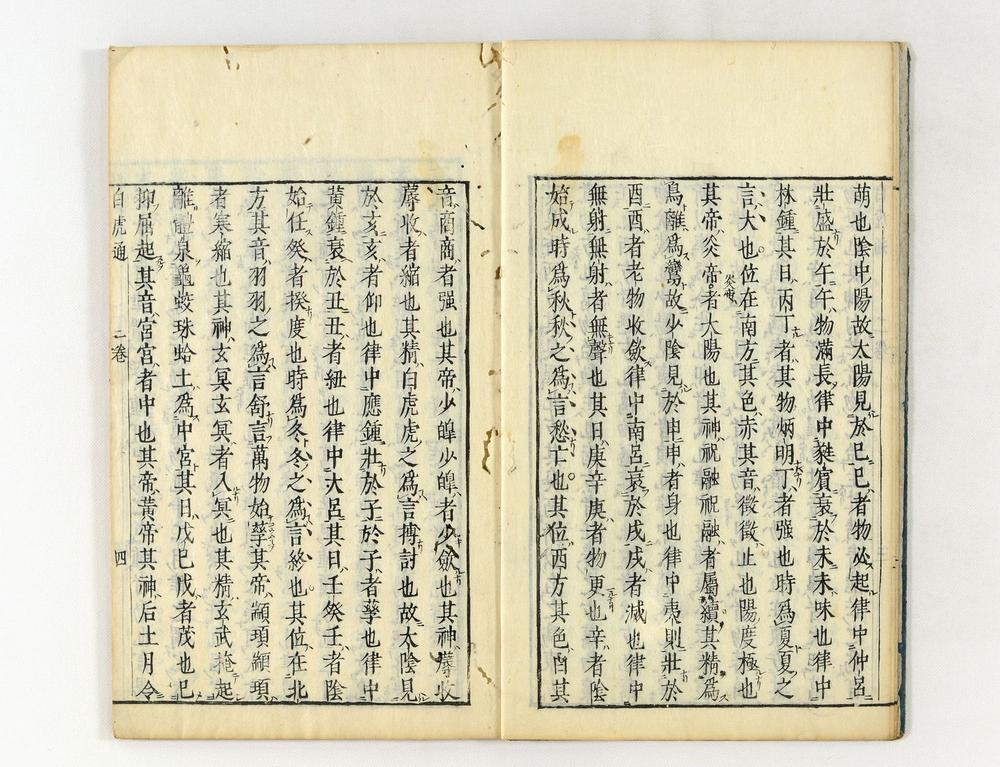 萌也陰中陽故太陽見於巳巳者物必起律中仲呂
壯盛於午午物滿長律中蕤賓衰於未未味也律中
林鍾其日丙丁者其物炳明丁者强也時爲夏夏之
言大也位在南方其色赤其音徵徵止也陽度極也
其帝炎帝者大陽也其神祝融祝融者屬續其精爲
鳥離爲鸞故少陰見於申申者身也律中夷則壯於
酉酉者老物收斂律中南呂衰於戌戌者滅也律中
無射無射者無聲也其日庚辛庚者物更也辛者陰
始成時爲秋秋之爲言愁亡也其位西方其色白其
音商商者强也其帝少皥少皥者少斂也其神蓐收
蓐收者縮也其精白虎虎之爲言搏討也故太陰見
於亥亥者仰也律中應鍾壯於子子者孳也律中
黄鍾衰於丑丑者紐也律中大呂其日壬癸壬者陰
始任癸者揆度也時爲冬冬之爲言終也其位在北
方其音羽羽之爲言舒言萬物始孳其帝顓頊顓頊
者寒縮也其神玄冥玄冥者入冥也其精玄武掩起
離體泉龜蛟珠蛤土爲中宮其日戊巳戊者茂也巳
抑屈起其音宮宮者中也其帝黄帝其神后土月令
白虎通 二卷 四